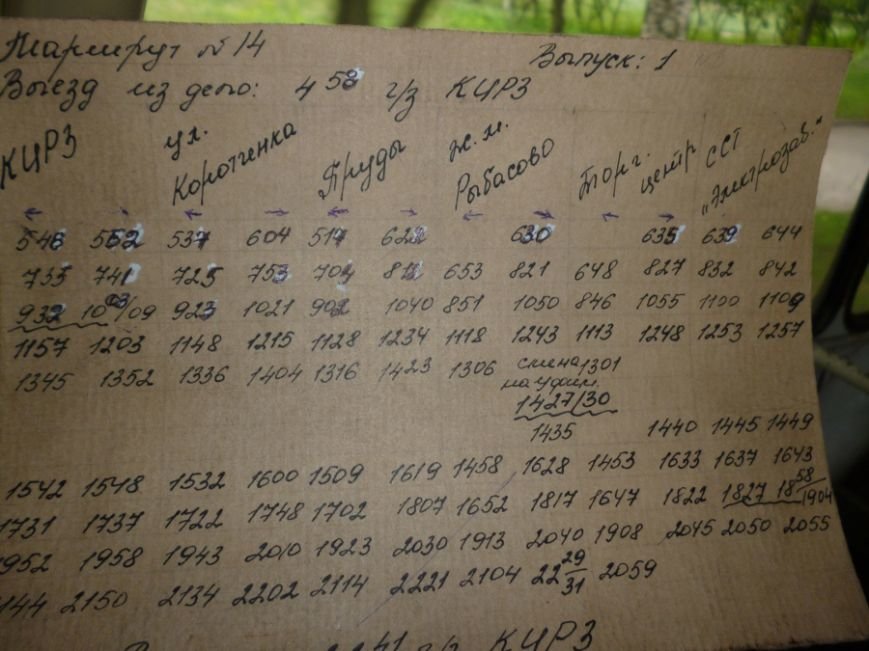 Маршрут № 14 Выпуск: 1
Выезд из депо: 4 58 ч/з КИРЗ
КИРЗ ул. Коротченка Пруды ж.м. Рыбасово Торг. центр ССТ "Электрозав."
← → ← → ← → ← → ← →
546 552 537 604 517 622 630 635 639 644
735 741 725 753 704 812 653 821 648 827 832 842
932 10 03/09 923 1021 902 1040 851 1050 846 1055 1100 1109
1157 1203 1148 1215 1128 1234 1118 1243 1113 1248 1253 1257
1345 1352 1336 1404 1316 1423 1306 смена 1301
1427/30
1435 1440 1445 1449
1542 1548 1532 1600 1509 1619 1458 1628 1453 1633 1637 1643
1731 1737 1722 1748 1702 1807 1652 1817 1647 1822 1827 18 58/1904
1952 1958 1943 2010 1923 2030 1913 2040 1908 2045 2050 2055
144 2150 2134 2202 2114 2221 2104 22 29/31 2059
КИРЗ